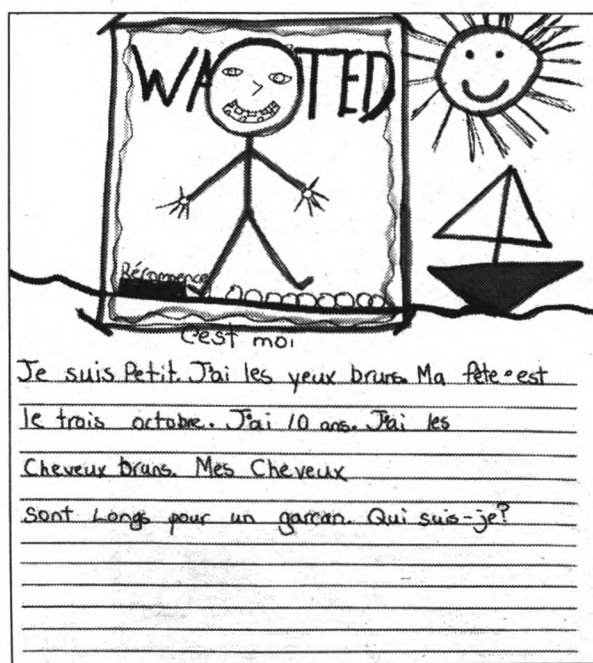 WANTED
Récomence
c'est moi
Je suis Petit. J'ai les yeux bruns. Ma fête est
le trois octobre. J'ai 10 ans. J'ai les
Cheveux bruns. Mes Cheveux
sont Longs pour un garcan. Qui suis-je?